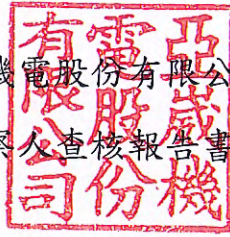 機電股份有限公
察人查核報告書
亞崴機
電股份
有限公司